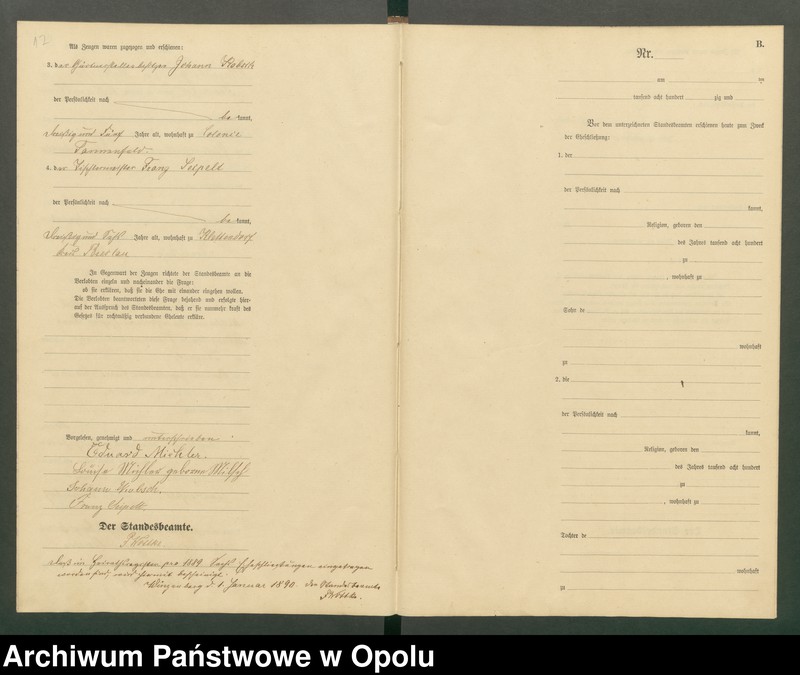 12
Als Zeugen waren zugezogen und erschienen:
3. der Gärtnerstellenbesitzer Johann
der Persönlichkeit nach
be kannt,
Dreißig und Fünf Jahre alt, wohnhaft zu Colonie
Tannenfeld.
4. der Tischlermeister Franz Seipelt
der Persönlichkeit nach
be kannt,
Dreißig und Jahre alt, wohnhaft zu Klettendorf
bei Breslau
In Gegenwart der Zeugen richtete der Standesbeamte an die
Verlobten einzeln und nacheinander die Frage:
ob sie erklären, daß sie die Ehe mit einander eingehen wollen.
Die Verlobten beantworteten diese Frage bejahend und erfolgte hier-
auf der Ausspruch des Standesbeamten, daß er sie nunmehr kraft des
Gesetzes für rechtmäßig verbundene Eheleute erkläre.
Vorgelesen, genehmigt und unterschrieben.
Eduard Michler.
Michler geborne
Johann
Franz Seipelt.
Der Standesbeamte.
Daß im Heirathsregister pro 1889 Sechs Eheschließungen eingetragen
worden sind, wird hiermit bescheinigt.
d 1. Januar 1890. Der Standesbeamte
B.
Nr.
am ten
tausend acht hundert zig und
Vor dem unterzeichneten Standesbeamten erschienen heute zum Zweck
der Eheschließung:
1. der
der Persönlichkeit nach
kannt,
Religion, geboren den
des Jahres tausend acht hundert
zu
, wohnhaft zu
Sohn de
wohnhaft
zu
2. die
der Persönlichkeit nach
kannt,
Religion, geboren den
des Jahres tausend acht hundert
zu
, wohnhaft zu
Tochter de
wohnhaft
zu
Archiwum Państwowe w Opolu